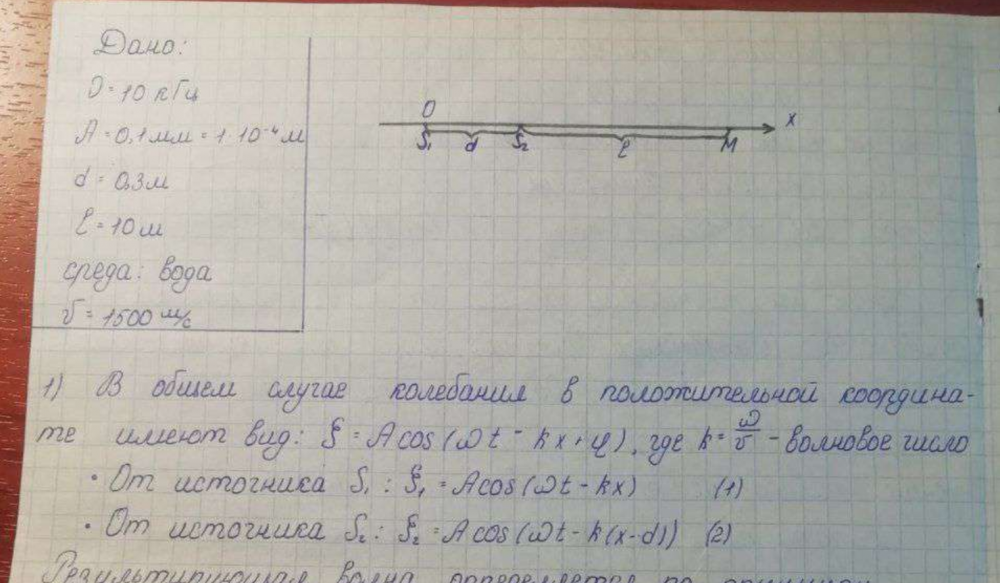 Дано:
ν = 10 кГц
A = 0,1 мм = 1·10⁻⁴ м
d = 0,3м
ℓ = 10 м
среда: вода
v = 1500 м/с
O
x
S₁ d S₂ ℓ M
1) В общем случае колебания в положительной координа-
те имеют вид: ξ = A cos(ωt - kx + φ), где k = ω/v - волновое число
· От источника S₁: ξ₁ = A cos(ωt - kx) (1)
· От источника S₂: ξ₂ = A cos(ωt - k(x-d)) (2)
Результирующая волна определяется по